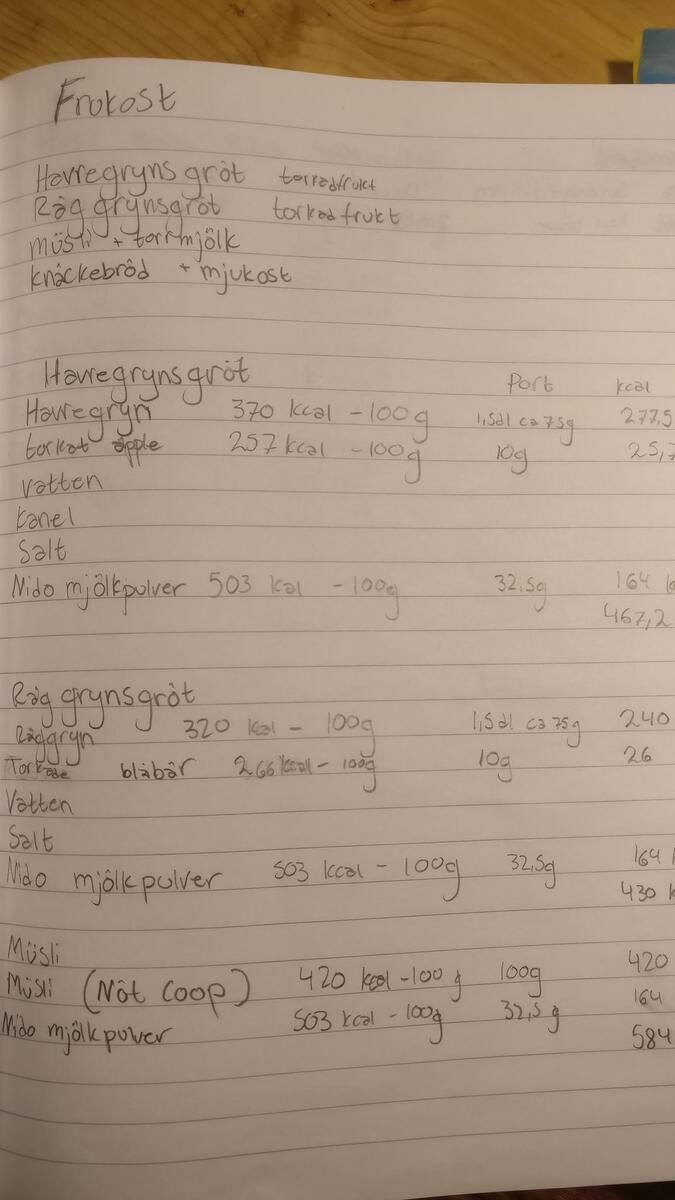 Frukost
Havregryns gröt torkadfrukt
Råg grynsgröt torkad frukt
müsli + torrmjölk
knäckebröd + mjukost
Havregrynsgröt Port kcal
Havregryn 370 kcal - 100g 1,5dl ca 75g 277,5
torkat äpple 257 kcal - 100g 10g 25,7
vatten
kanel
Salt
Nido mjölkpulver 503 kcal - 100g 32,5g 164 k
467,2
Råg grynsgröt
Råggryn 320 kcal - 100g 1,5dl ca 75g 240
Torkade blåbär 266 kcal - 100g 10g 26
Vatten
Salt
Nido mjölkpulver 503 kcal - 100g 32,5g 164 k
430 k
Müsli
Müsli (Nöt Coop) 420 kcal - 100 g 100g 420
Nido mjölkpulver 503 kcal - 100g 32,5 g 164
584